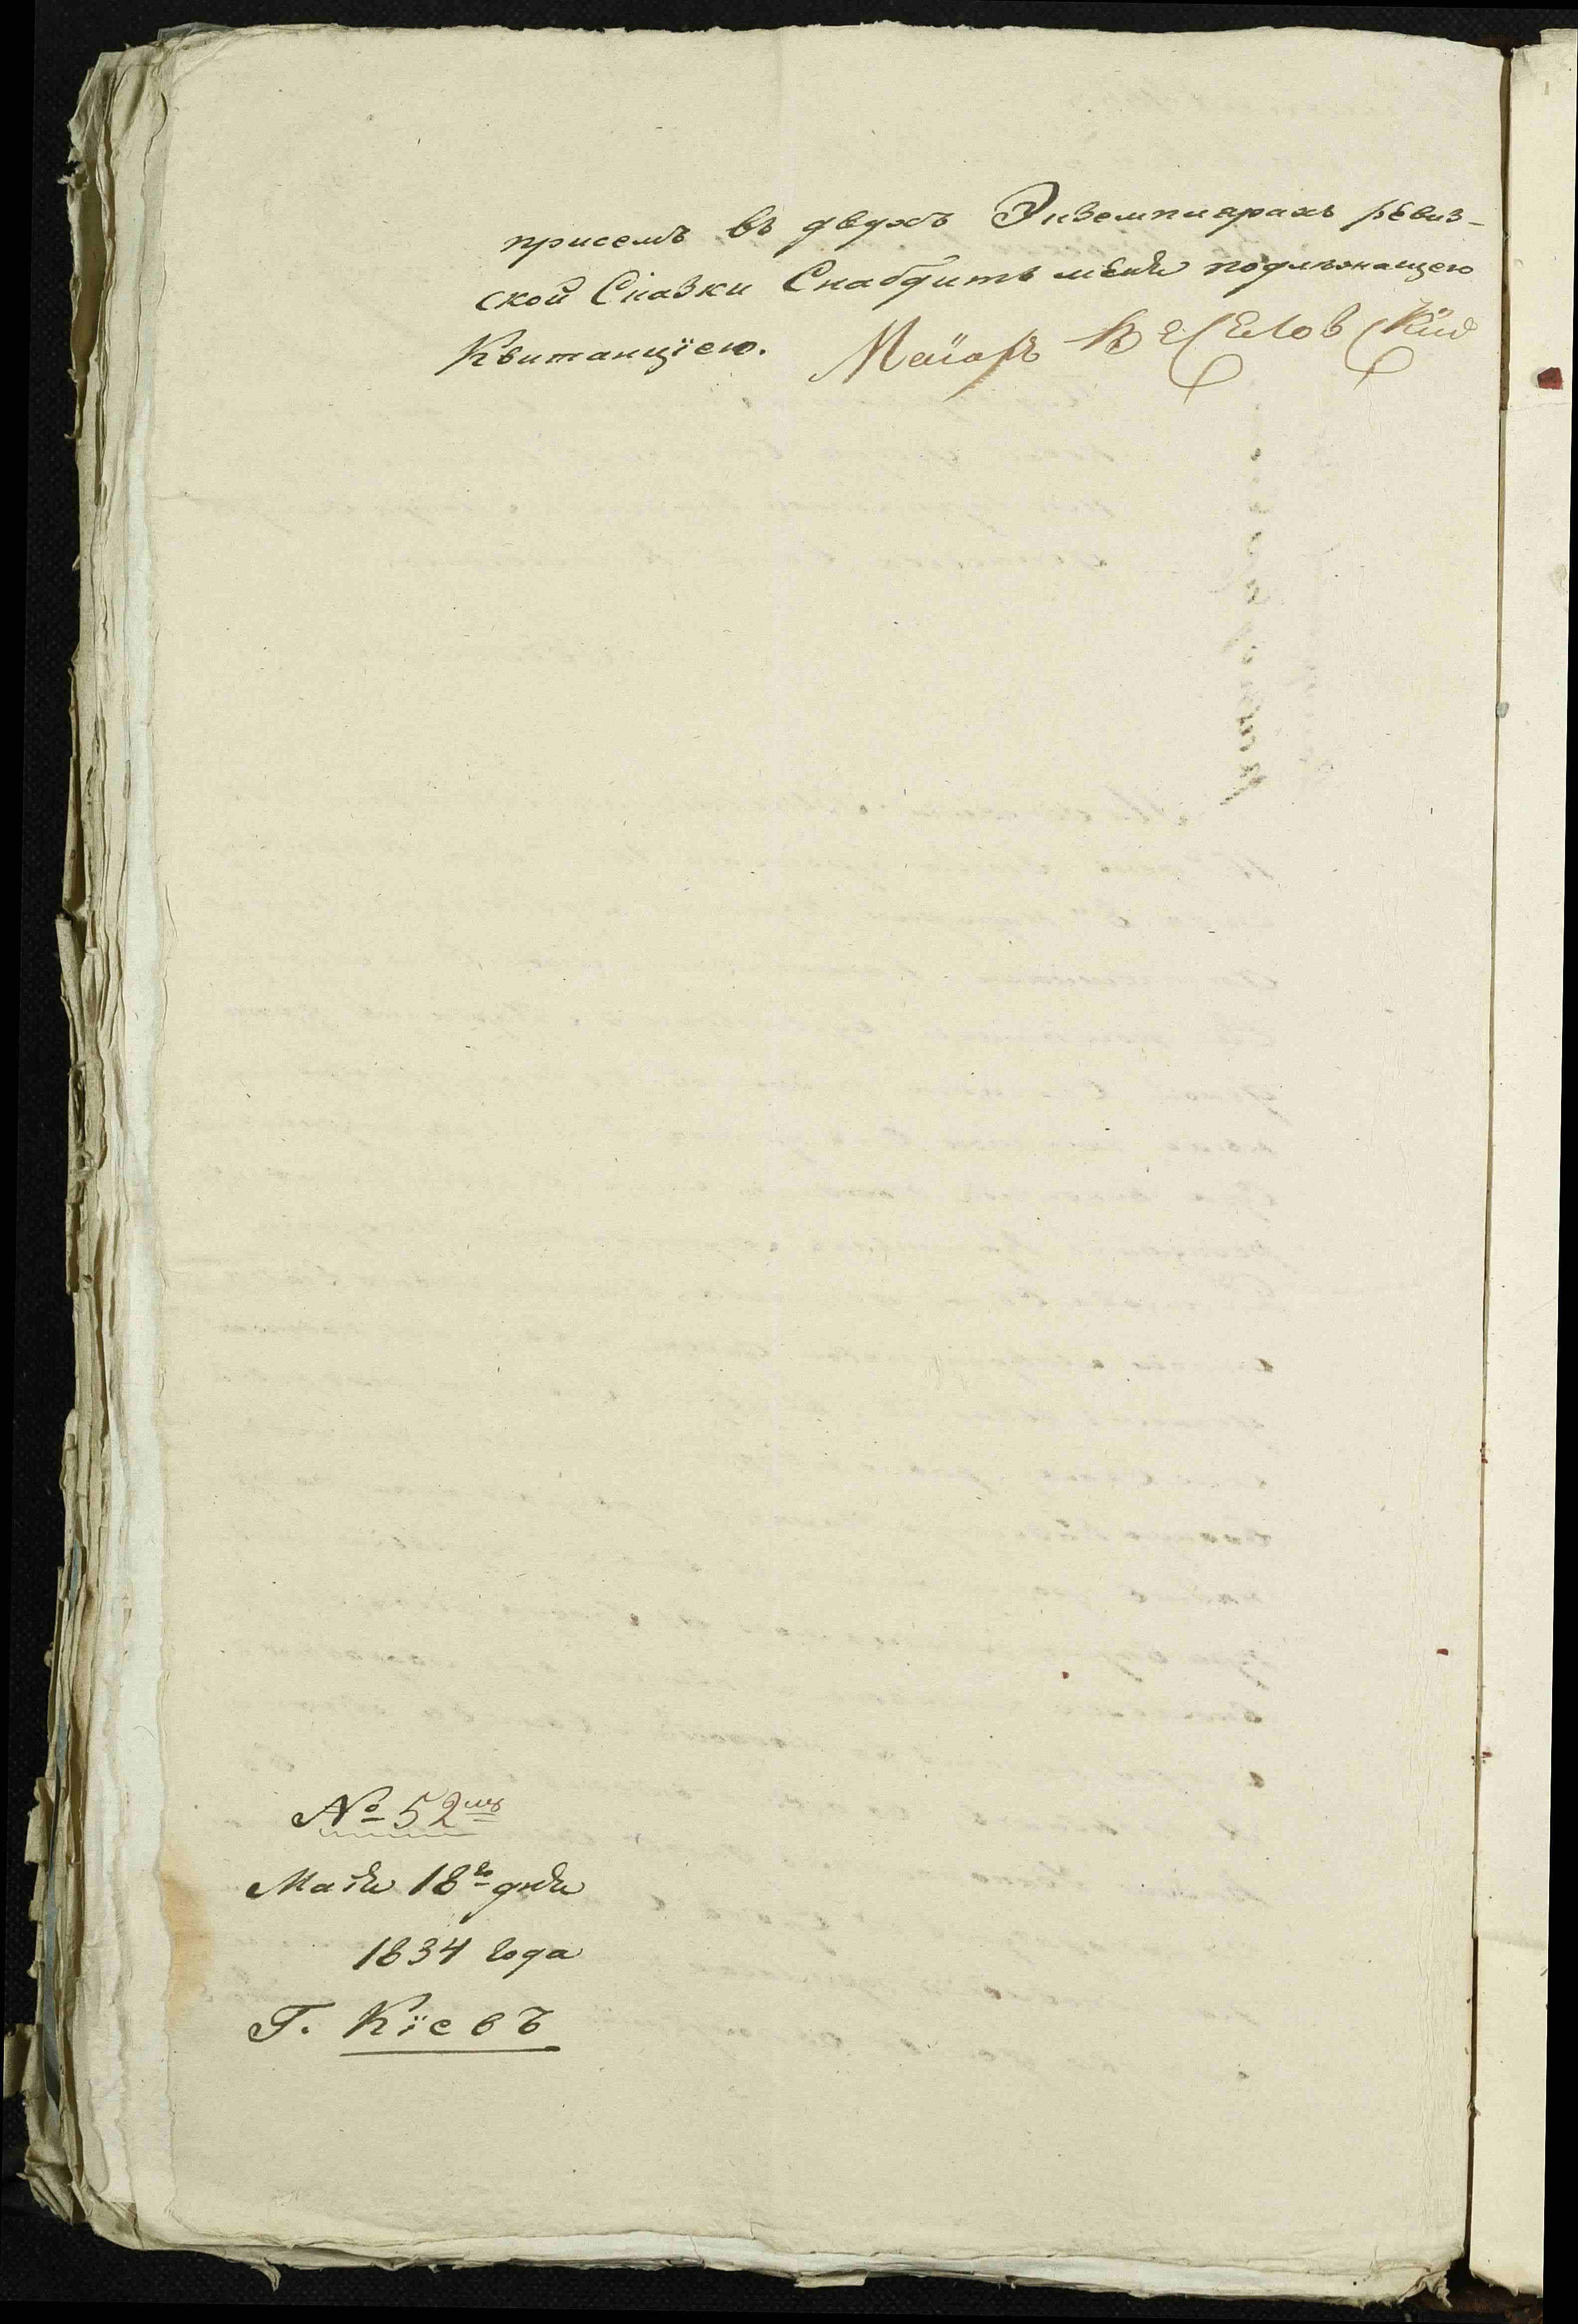 присемъ въ двухъ Экземплярахъ ревиз-
ской Сказки Снабдить меня подлѣжащею
Квитанцїею. Маіоръ Веселовскій
№ 52
Маія 18го дня
1834 года
Г. Кїевъ